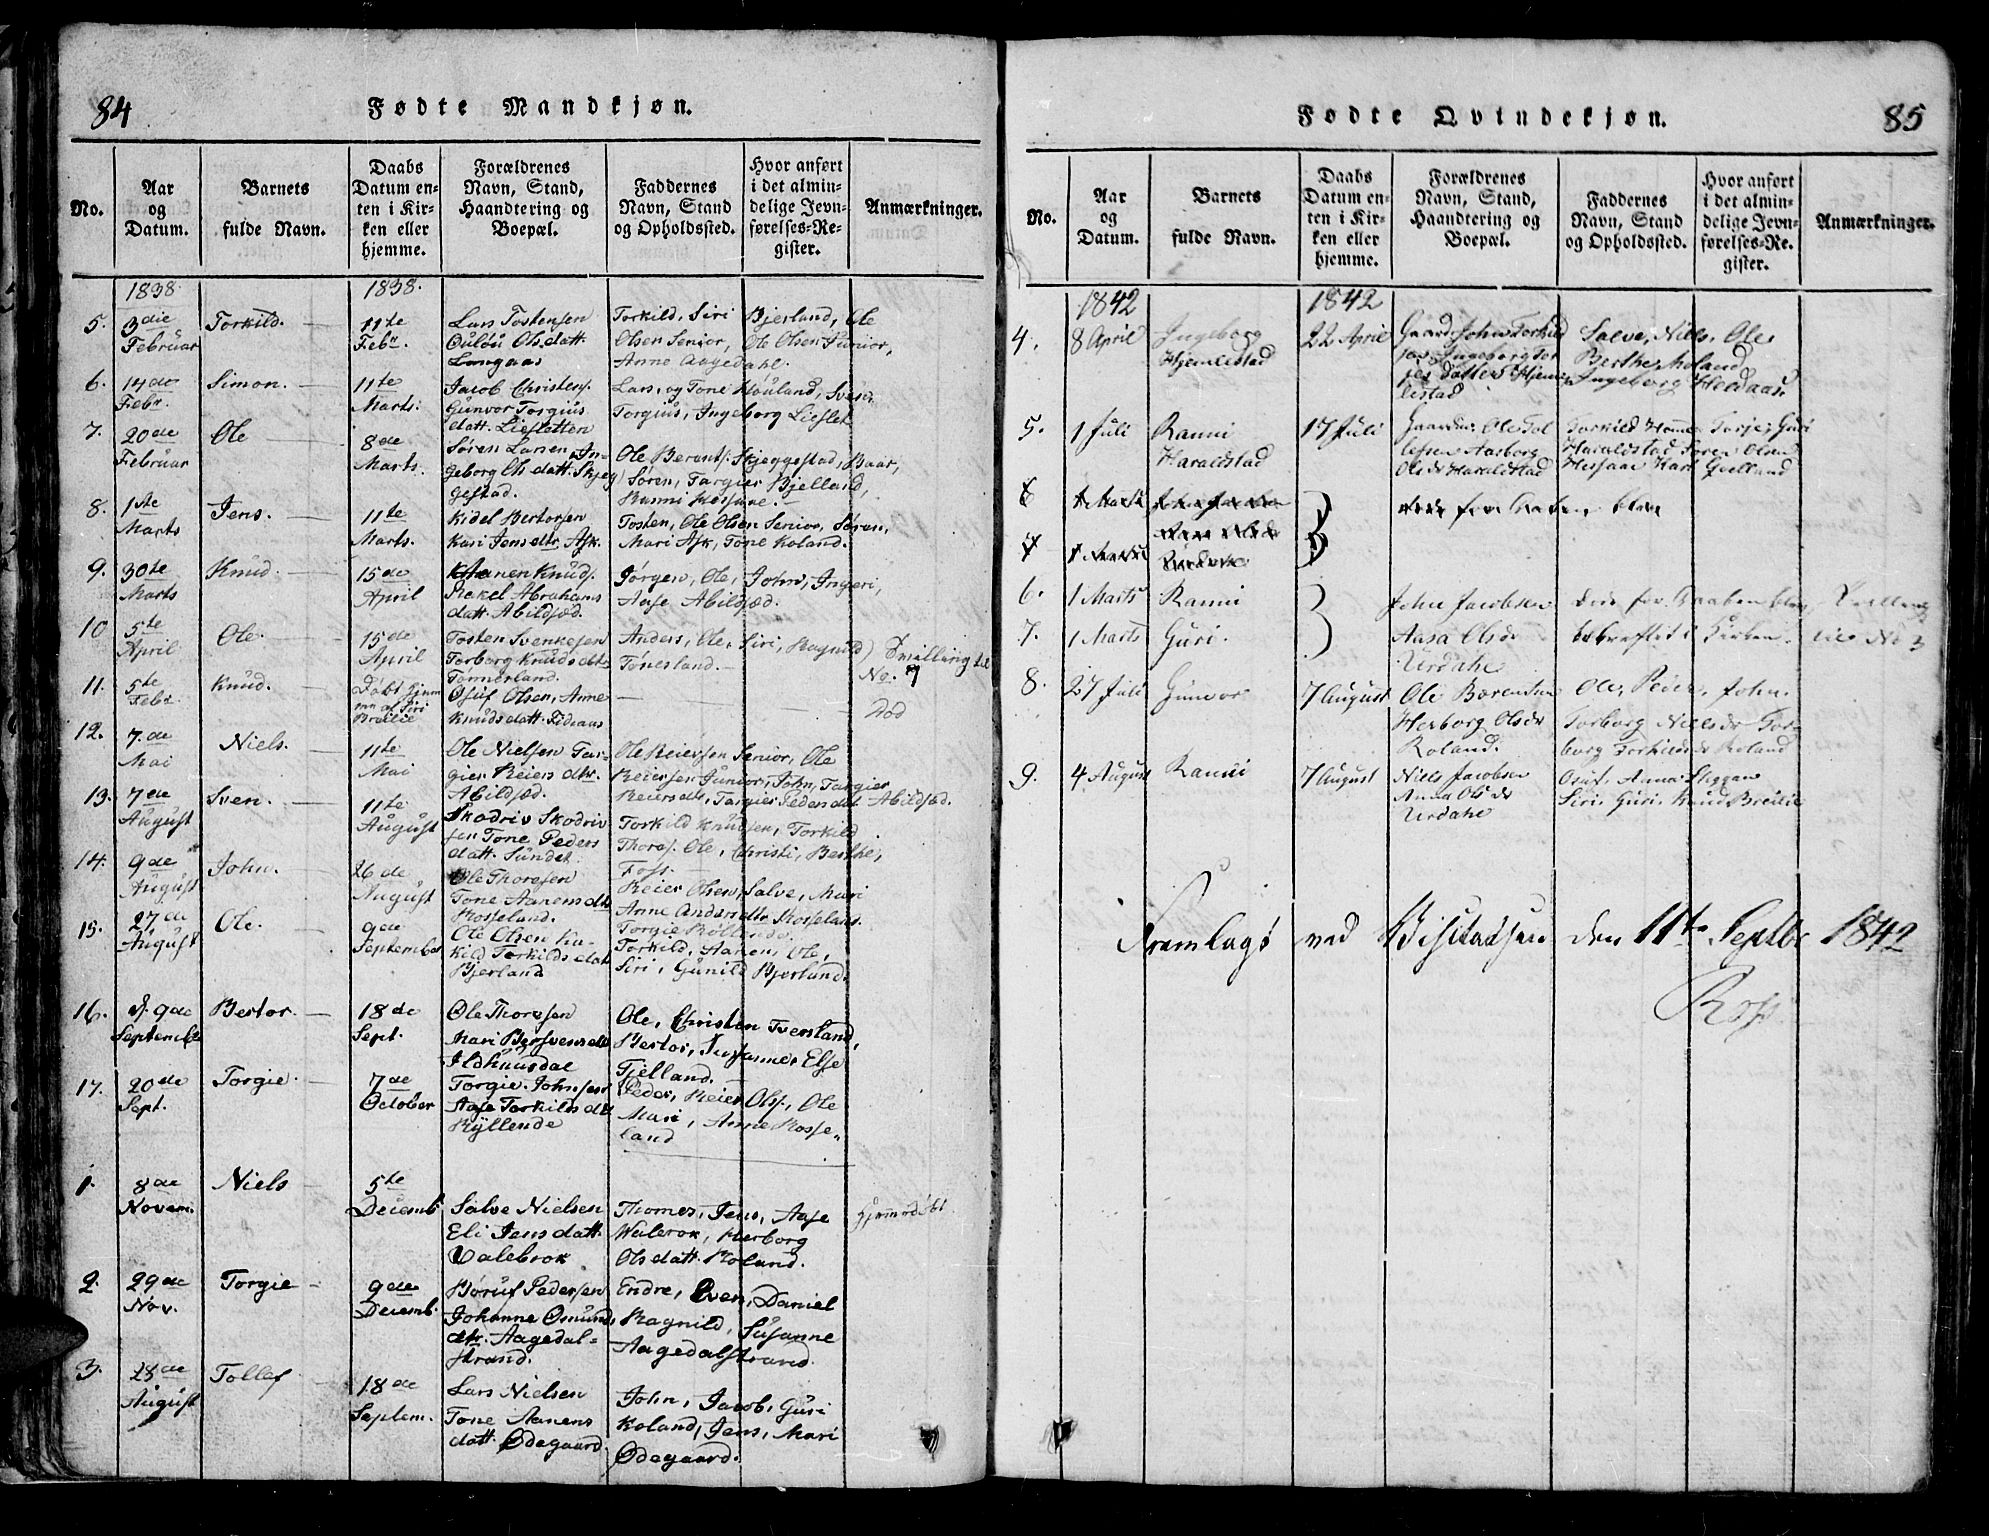 84
Fødte Mandkjøn.
No.
Aar og Datum.
Barnets fulde Navn.
Daabs Datum enten i Kirken eller hjemme.
Forældrenes Navn, Stand, Haandtering og Boepæl.
Faddernes Navn, Stand og Opholdssted.
Hvor anført i det almindelige Jevnførelses-Register.
Anmærkninger.
1838. 1838.
5. 3die Februar Torkild. 11te Febr. Lars Tostensen Olsdatt. Langaas Torkild, Siri Bjerland, Ole Olsen Senior, Ole Olsen Junior, Anne Aagedahl.
6. 14de Febr. Simon. 11te Marts. Jacob Christens. Gunvor Torgius datt. Liesletten Lars, og Tone Houland, Sven, Torgius, Ingeborg Lieslet
7. 20de Februar Ole 8de Marts. Søren Larsen, Ingeborg Olsdatt. Skjeggestad. Ole Berents. Skjeggestad, Baar, Søren, Targier Bjelland, Ranni Hessaae.
8. 1ste Marts Jens. 11te Marts. Kidel Bertorsen Kari Jensdtr Ask. Tosten, Ole Olsen Senior, Søren, Mari Ask, Tone Koland.
9. 30te Marts Knud. 15de April Aanen Knuds. Rakel Abrahams datt. Abildsæd. Jørgen, Ole, John, Ingeri, Aase Abildsæd.
10 5te April Ole. 15de April Tosten Svenkesen Torborg Knudsdtr Tønnerland. Anders, Ole, Siri, Ragnild Tønesland. Tvilling til No. 7
11. 5te Febr. Knud. Døbt hjemme af Siri Breilie Osuf Olsen, Anne Knudsdatt. Fidjeaas Død
12. 7de Mai Niels. 11te Mai Ole Nielsen Targier Reiersdtr. Abildsæd. Ole Reiersen Senior, Ole Reiersen Junior, John, Targier Reiersdtr, Targier Pedersdtt Abildsæd.
13. 7de August Sven. 11te August Skodriv Skodrivsen Tone Peders datt. Sundet. Torkild Knudsen, Torkild Thores. Ole, Christi, Berthe, Foss.
14. 9de August John. 26de August Ole Thoresen Tone Aanensdtr Kosseland. Reier Olsen, Salve, Mari Anne Andersdtr Kosseland.
15. 27de August Ole. 9de September Ole Olsen Kakild Torkildsdat Bjerland Torkild, Aanen, Ole, Siri, Gunild Bjerland.
16. d. 9de September Bertor. 18de Sept. Ole Thoresen Mari Bersvensdtt Ildhuusdal Ole, Christen Tversland, Bertor, Susanne, Else Fjelland.
17. 20de Sept. Torgie. 7de October Torgie Johnsen Aase Torkildsdtt Ryllende Peder, Reier Ols., Ole Mari, Anne Kosseland
1. 8de Novem. Niels 5te Decemb. Salve Nielsen Eli Jensdatt. Valebrok Thomes, Jens, Aase Walerok, Herborg Olsdatt. Roland. hjemmedøbt.
2. 29de Nov. Torgie 9de Decemb. Børuf Pedersen Johanne Osmunds dtr. Aagedalstrand. Endre, Even, Daniel Ragnild, Susanne Aagedalstrand.
3. 28de August Tollef 18de Septem. Lars Nielsen Tone Aanens datt. Ødegaard. John, Jacob, Guri Koland, Jens, Mari Ødegaard.
Fødte Qvindekjøn.
85
No.
Aar og Datum.
Barnets fulde Navn.
Daabs Datum enten i Kirken eller hjemme.
Forældrenes Navn, Stand, Haandtering og Boepæl.
Faddernes Navn, Stand og Opholdssted.
Hvor anført i det almindelige Jevnførelses-Re. gister.
Anmærkninger.
1842 1842
4. 8 April Ingeborg Hjemlestad 22 April Gaardm. John Torkildsen Ingeborg Torjesdatter Hjemlestad Salve, Niels, Ole, Berthe Moland Ingeborg Heldaas
5. 1 Juli Ranni Haraldstad 17 Juli Gaardm. Ole Tollefsen Aasborg Olsdr Haraldstad Torkild Homme Torje, Guri Haraldstad Søren Olsen Hessaae Kari Gjelland
6 1 Marts
7 1 Marts
6. 1 Marts Ranni John Jacobsen Døde før Daaben blev Trillinger
7. 1 Marts Guri. Aasa Olsdr Urdahl bekræftet i Kirken. til No 3
8. 27 Juli Gunvor 7 August Ole Berentsen Herborg Olsdr Roland. Ole, Peder, John. Torborg Nielsdr Torborg Torkildsdr Roland
9. 4 August Ranni 7 August Niels Jacobsen Anna Olsdr Urdahl Osuf, Anna Skeggan Siri, Guri, Knud Breilie
Fremlagt ved Visitatsen den 11te Septbr 1842